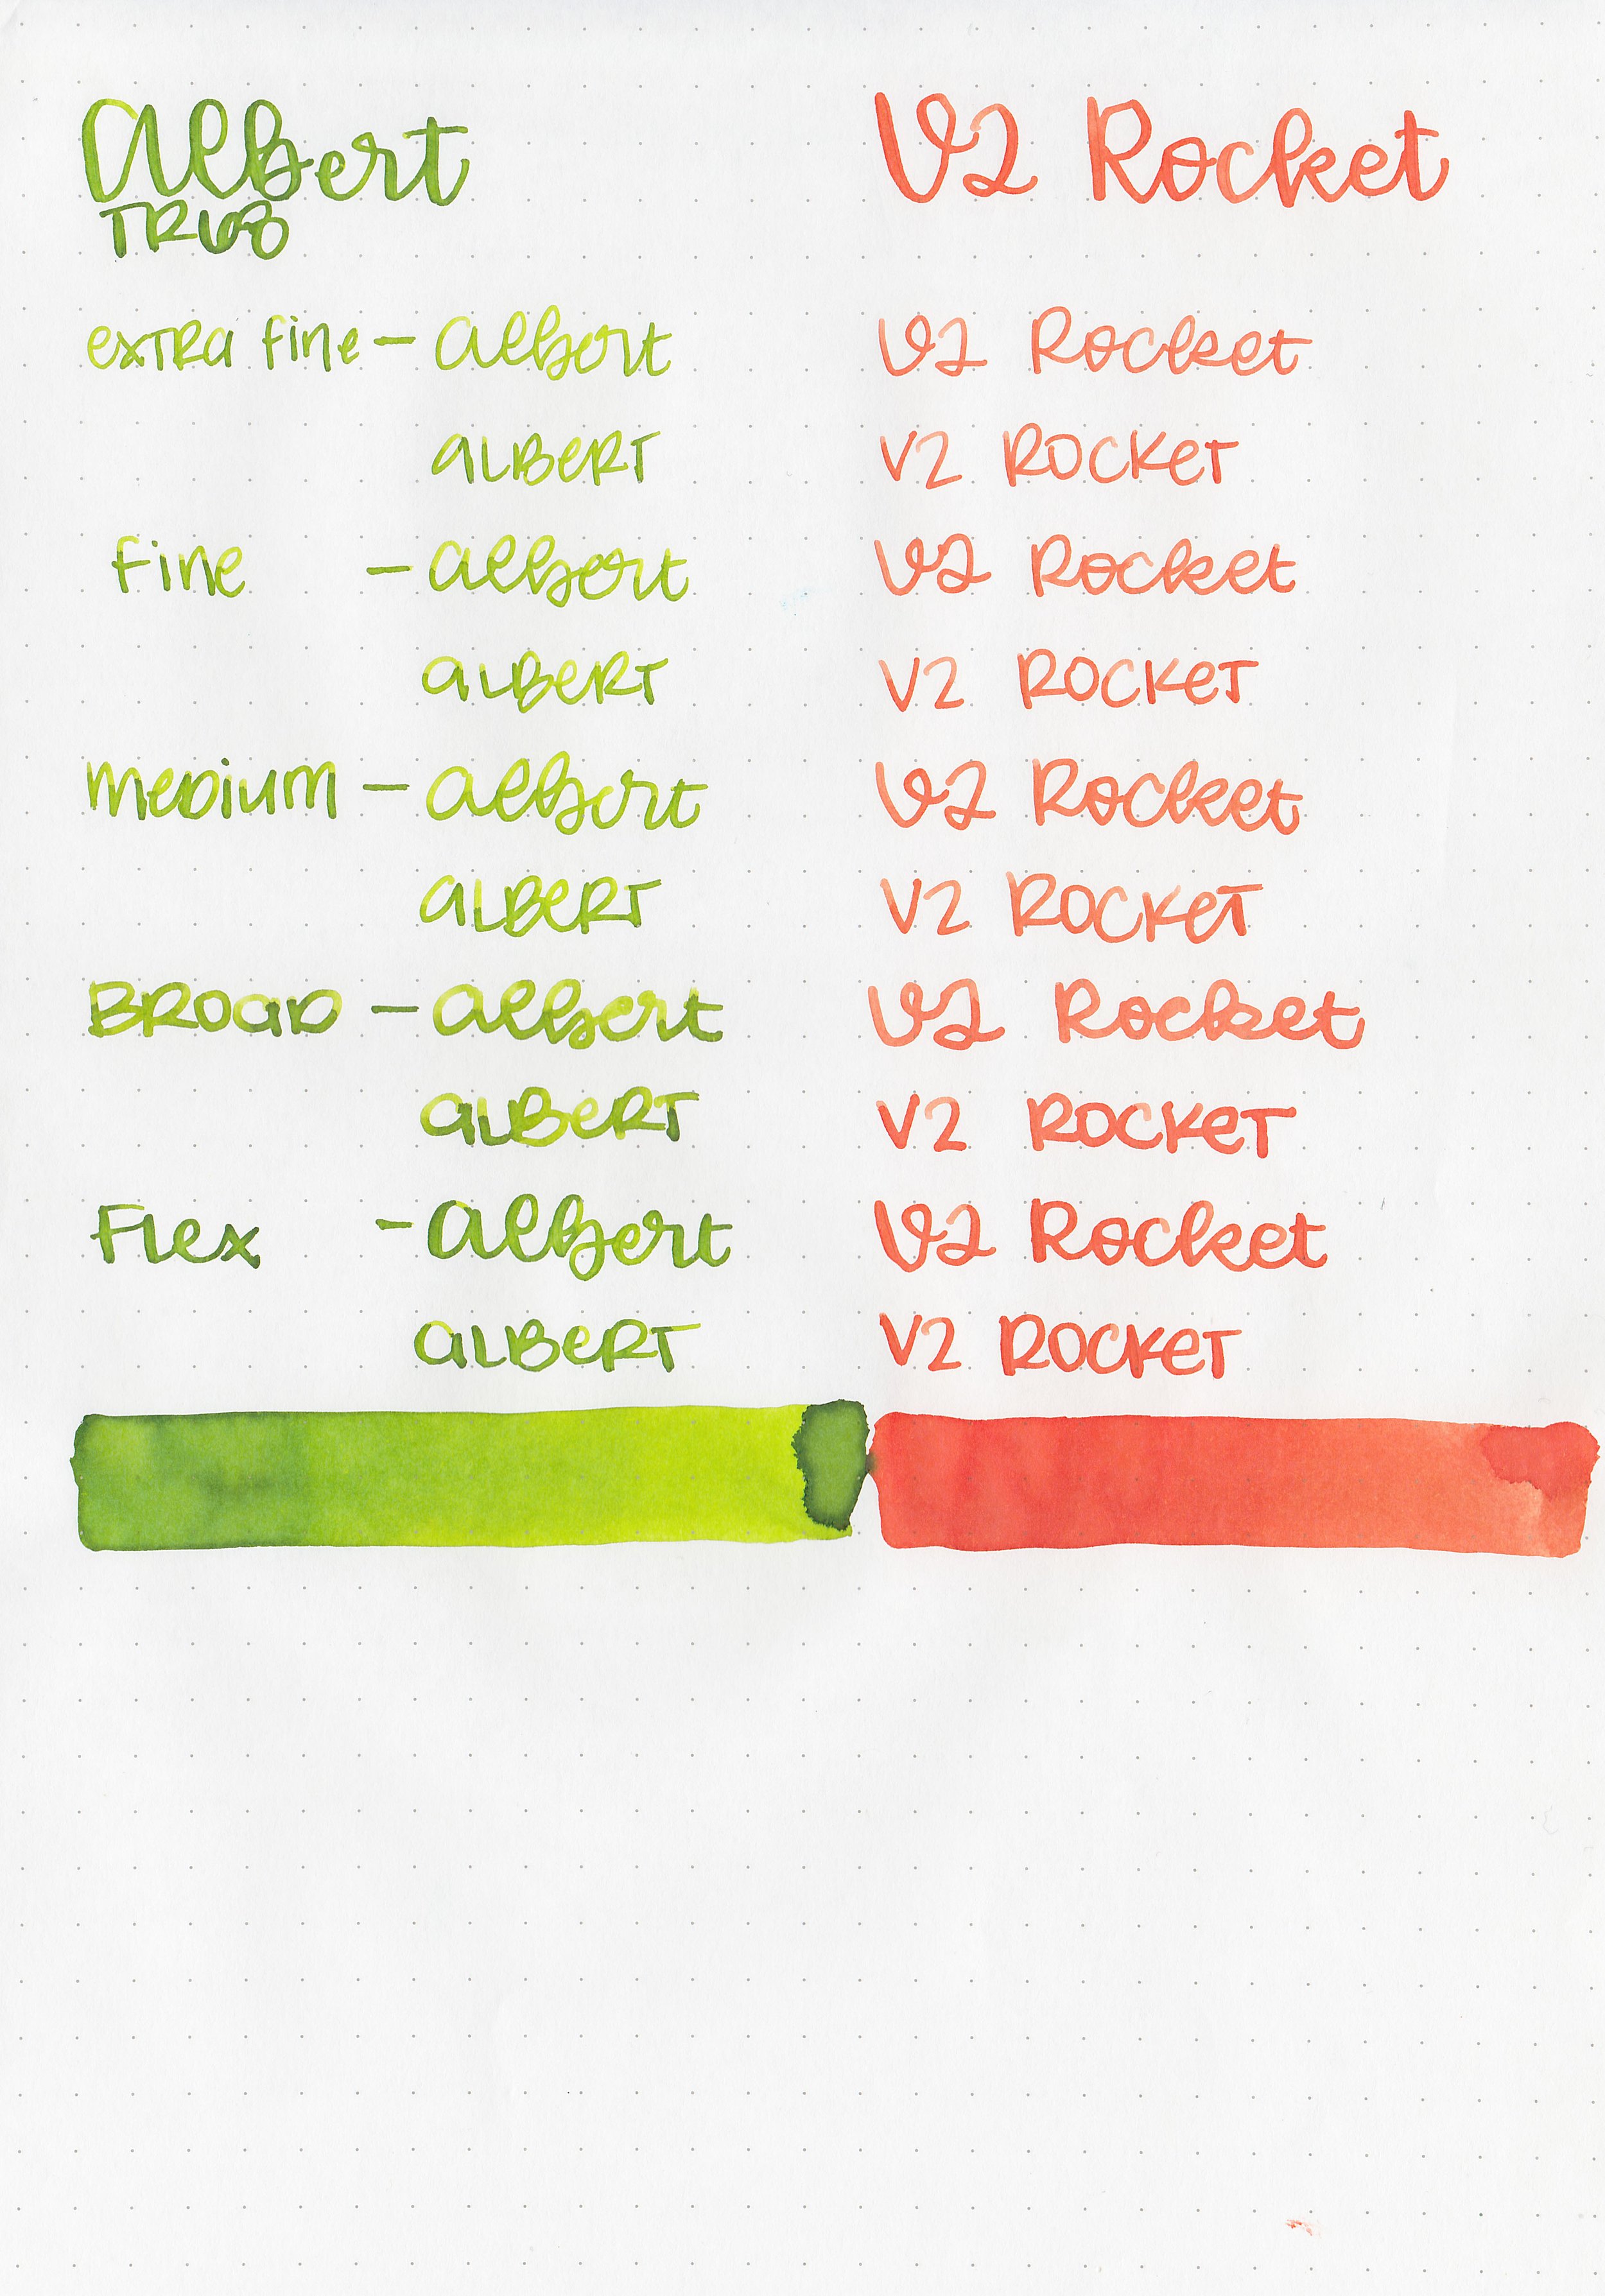 Albert V2 Rocket
TR68
extra fine - Albert V2 Rocket
ALBERT V2 ROCKET
Fine - Albert V2 Rocket
ALBERT V2 ROCKET
Medium - Albert V2 Rocket
ALBERT V2 ROCKET
Broad - Albert V2 Rocket
ALBERT V2 ROCKET
Flex - Albert V2 Rocket
ALBERT V2 ROCKET